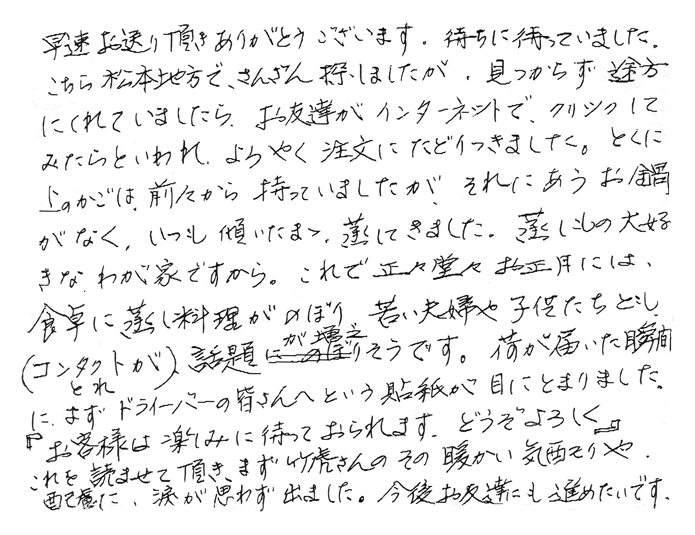 早速お送り頂きありがとうございます。待ちに待っていました。
こちら松本地方で、さんざん探しましたが、見つからず途方
にくれていましたら、お友達がインターネットで、クリックして
みたらといわれ、ようやく注文にたどりつきました。とくに
上のかごは、前々から持っていましたが、それにあうお鍋
がなく、いつも傾いたまゝ、蒸してきました。蒸しもの大好
きな、わが家ですから。これで正々堂々お正月には、
食卓に蒸し料理がのぼり、若い夫婦や子供たちとも
(コンタクトがとれ)、話題が増えそうです。荷が届いた瞬間
に、まずドライバーの皆さんへという貼紙が目にとまりました。
『お客様は楽しみに待っておられます。どうぞよろしく』
これを読ませて頂き、まず竹虎さんのその暖かい気配りや、
配慮に、涙が思わず出ました。今後お友達にも進めたいです。